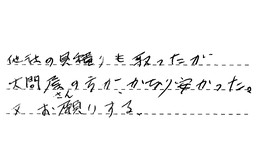 他社の見積りも取ったが
大問屋さんの方が、かなり安かった。
又お願いする。